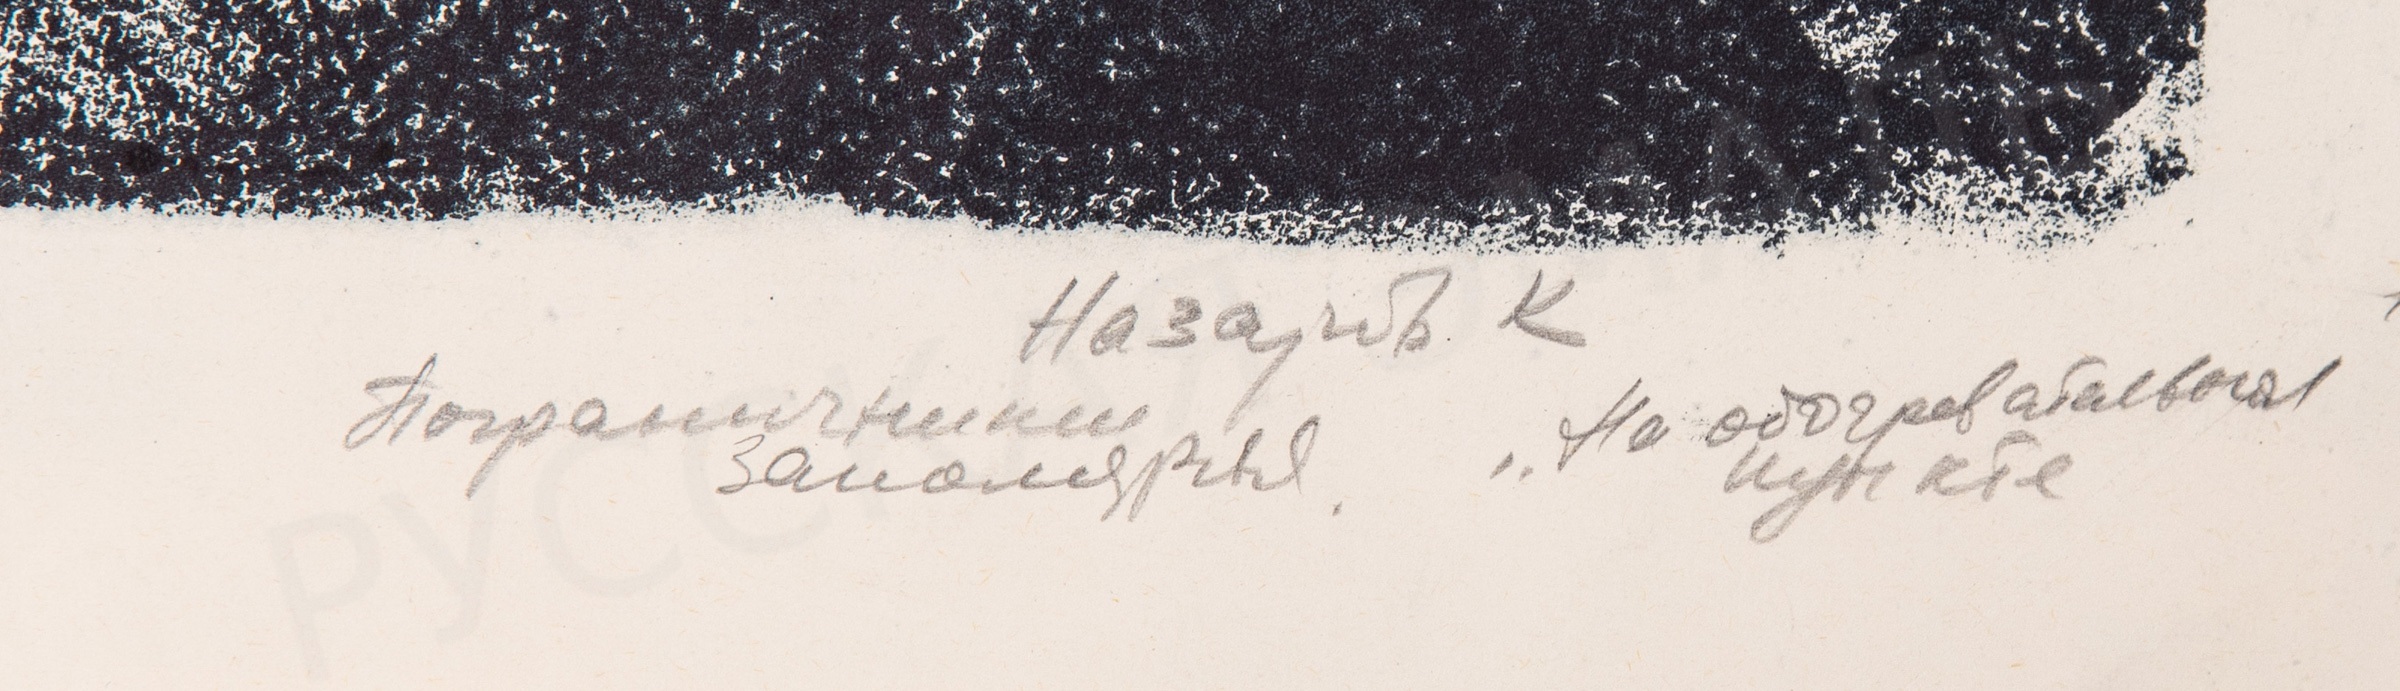 Назаров К
Пограничники
Заполярья.
„На обогревательном
пункте